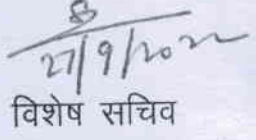 27/9/2022
विशेष सचिव